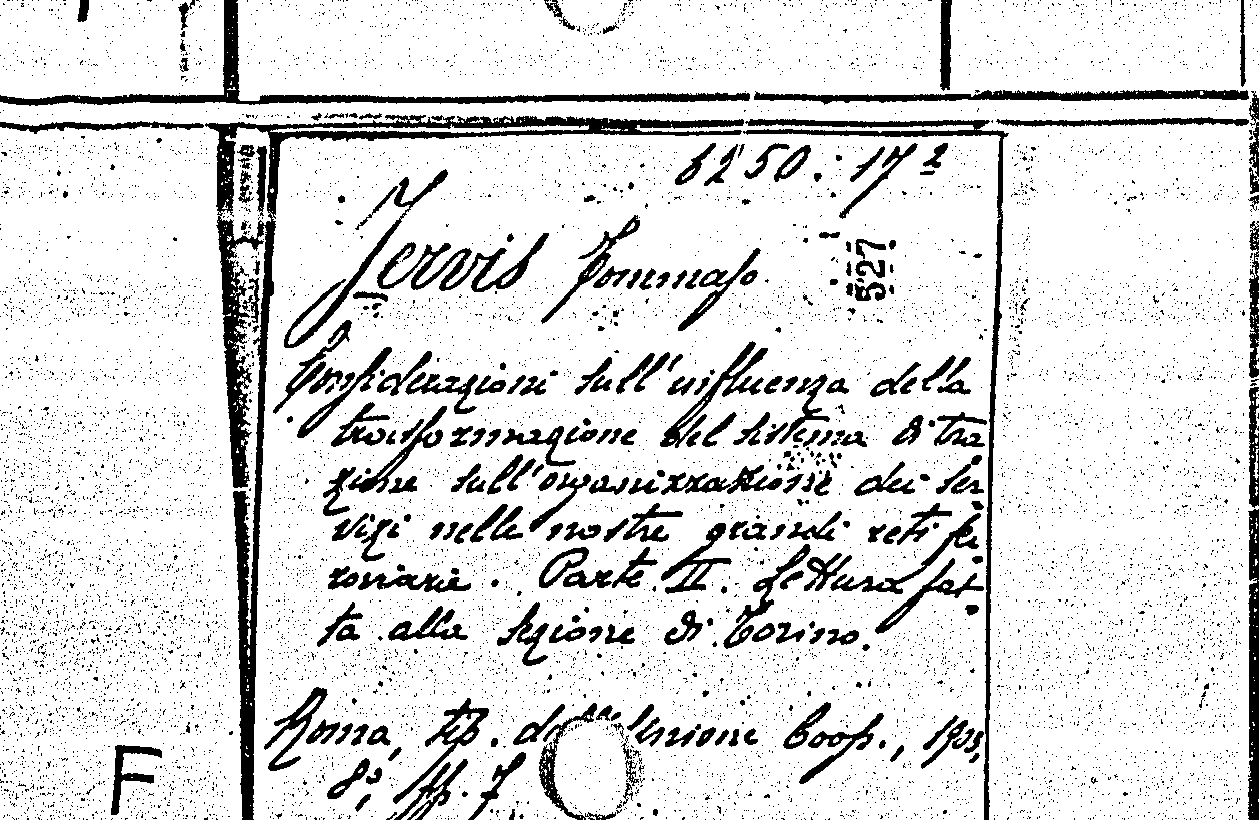 6250. 17²
Jervis Tommaso
527
Considerazioni sull'influenza della
trasformazione del sistema di tra
zione sull'organizzazione dei ser
vizi nelle nostre grandi reti fer
roviarie. Parte II. Lettura fat
ta alla sezione di Torino.
Roma, tip. dell'Unione Coop., 
8°, pp. 7
F